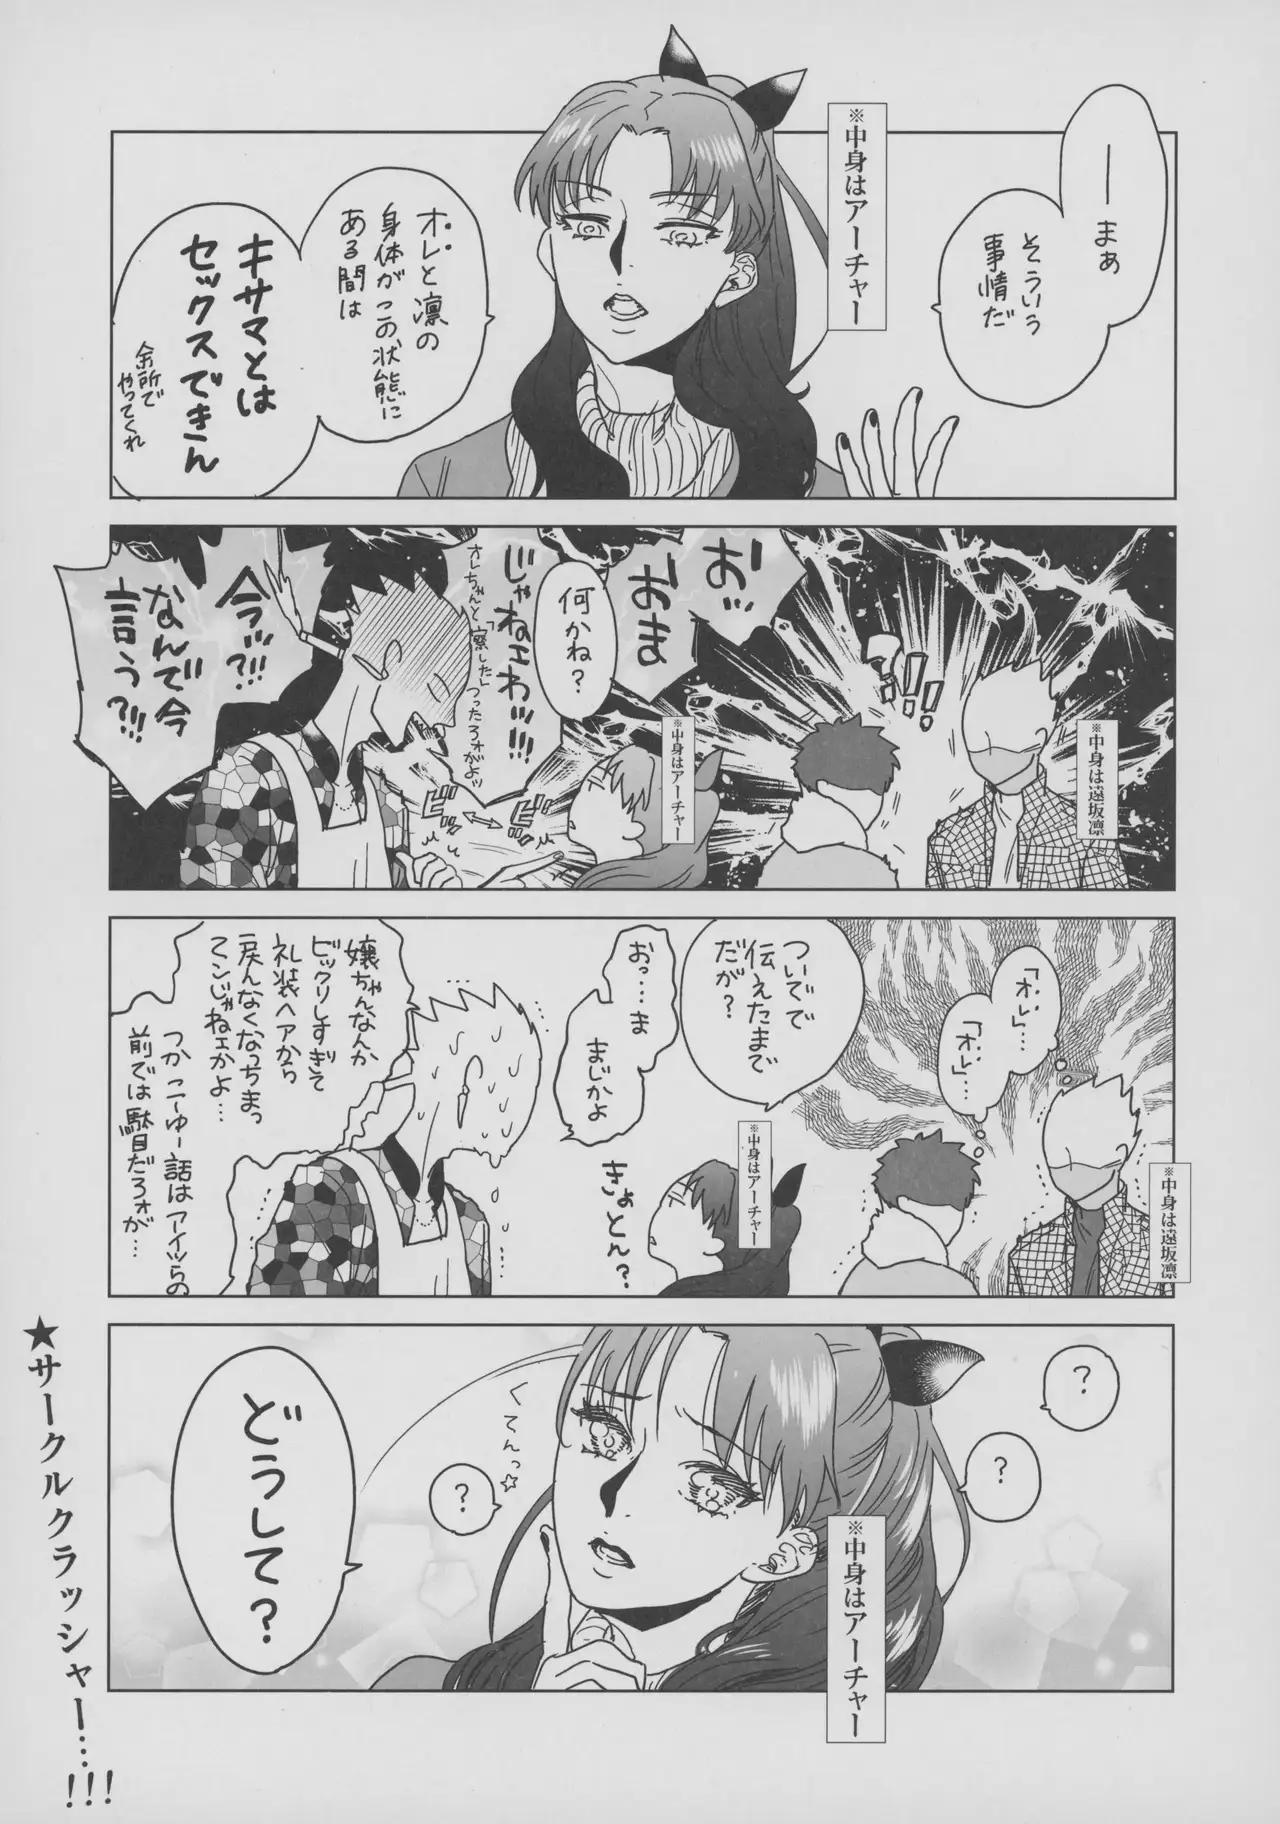 ―まぁ
そういう
事情だ
※中身はアーチャー
オレと凛の
身体がこの状態に
ある間は
キサマとは
セックスできん
余所で
やってくれ
おッ
おま
何かね?
じゃねェわッ!!!
オレちゃんと「察した」つったろォがよッ
今ッ?!!!
なんで今
言う?!!!
ビッ
ビッ
?!!!
※中身はアーチャー
※中身は遠坂凛
「オレ」…
「オレ」…
ついでで
伝えたまで
だが?
おっ…ま
まじかよ
きょとん?
嬢ちゃんなんか
ビックリしすぎて
礼装ヘアから
戻んなくなっちまっ
てンじゃねェかよ…
つかこーゆー話はアイツらの
前では駄目だろォが…
※中身はアーチャー
※中身は遠坂凛
?
?
くてんっ☆
?
どうして?
※中身はアーチャー
★サークルクラッシャー…!!!